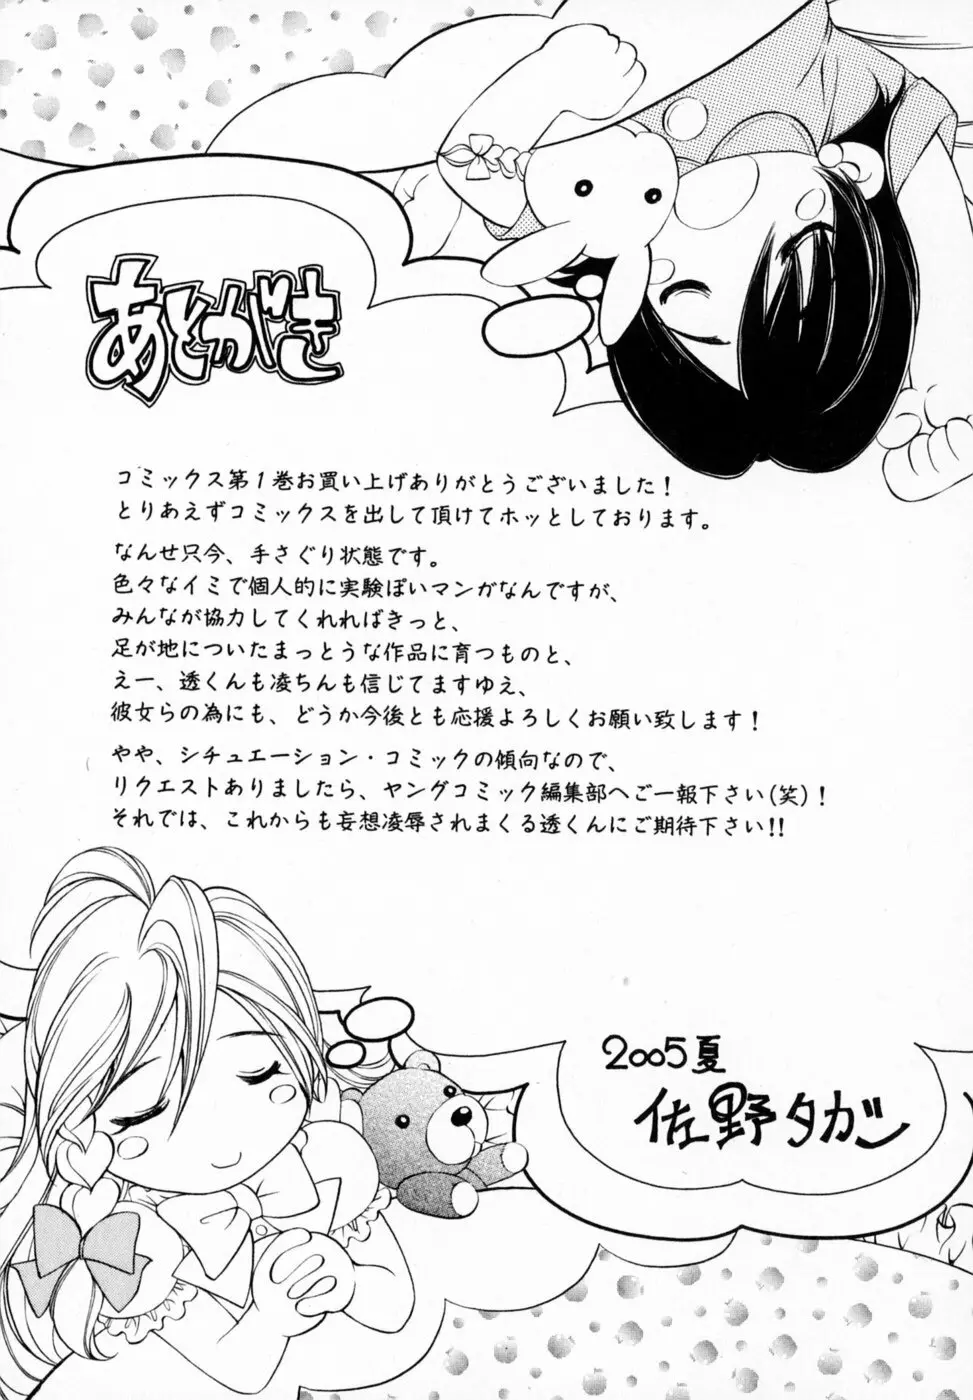 あとがき
コミックス第1巻お買い上げありがとうございました!
とりあえずコミックスを出して頂けてホッとしております。
なんせ只今、手さぐり状態です。
色々なイミで個人的に実験ぽいマンガなんですが、
みんなが協力してくれればきっと、
足が地についたまっとうな作品に育つものと、
えー、透くんも凌ちんも信じてますゆえ、
彼女らの為にも、どうか今後とも応援よろしくお願い致します!
やや、シチュエーション・コミックの傾向なので、
リクエストありましたら、ヤングコミック編集部へご一報下さい(笑)!
それでは、これからも妄想凌辱されまくる透くんにご期待下さい!!
2005夏
佐野タカシ